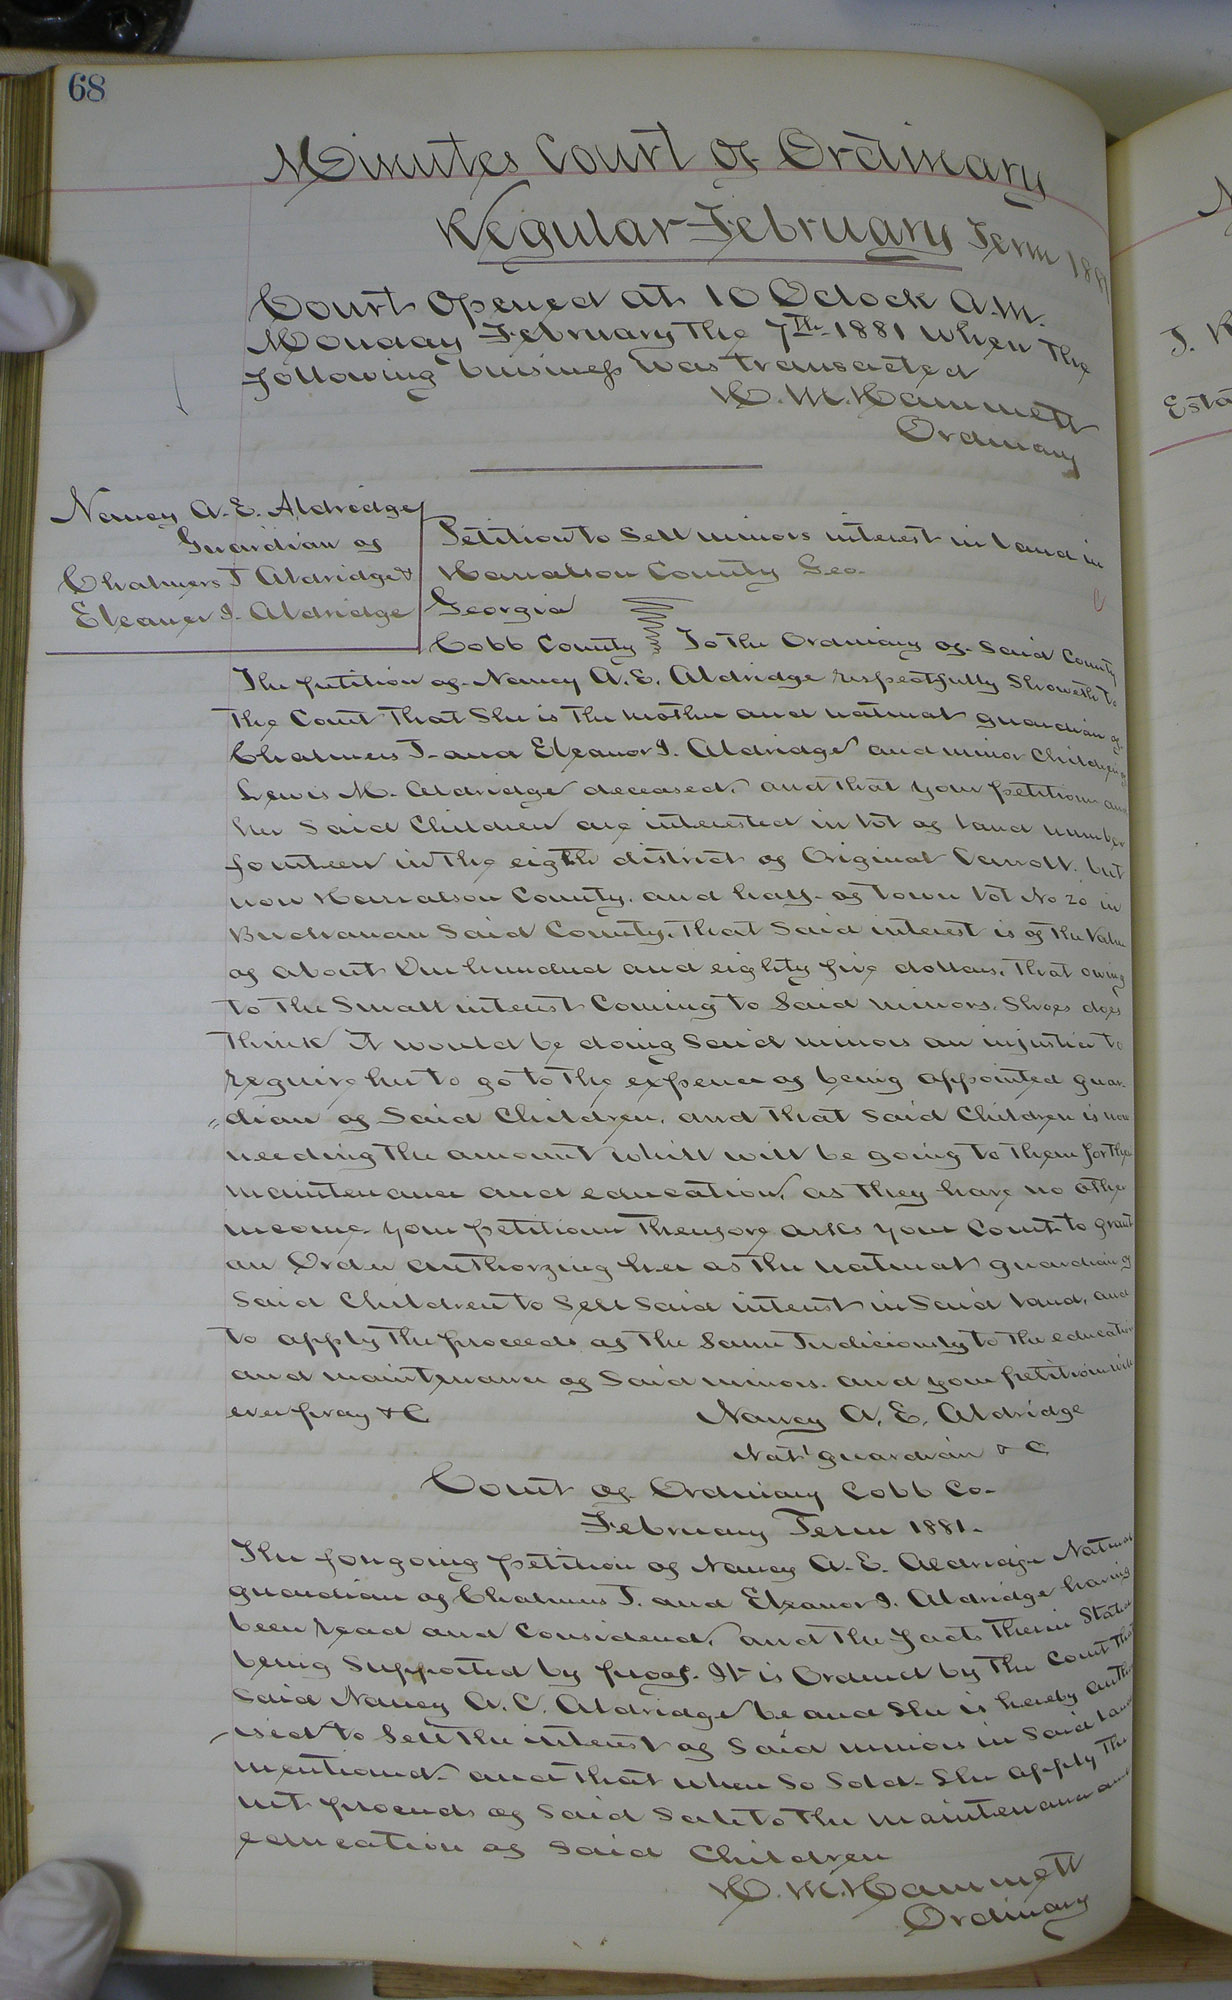 68
Minutes Court of Ordinary
Regular February Term 188
Court Opened at 10 Oclock A.M.
Monday February the 7th 1881 when the
following business was transacted
H. M. Hammett
Ordinary
Nancy A. E. Aldridge
Guardian of
Chalmers J Aldridge &
Eleaner I. Aldridge
Petition to Sell minors interest in land in
Harralson County Geo.
Georgia
Cobb County To the Ordinary of Said County
The petition of Nancy A. E. Aldridge respectfully Showeth to
the Court that She is the mother and natural guardian of
Chalmers J. and Eleanor I. Aldridge and minor Children of
Lewis M. Aldridge deceased, and that your petitioner and
her Said Children are interested in lot of land number
fourteen in the eighth district of Original Carroll. but
now Harralson County. and half of town lot No 20 in
Buchanan Said County. That Said interest is of the Value
of about One hundred and eighty five dollars. That owing
to the Small interest Coming to Said minors. Shoes does
think it would be doing Said minors an injustice to
require her to go to the expence of being appointed guar-
"dian of Said Children, and that Said Children is now
needing the amount which will be going to them for the
maintenance and education, as they have no other
income. your petitioner therefore asks your Court to grant
an Order authorzing her as the natural guardian of
Said Children to Sell Said interest in Said land, and
to apply the proceeds of the Same Judiciously to the education
and maintenance of Said minors. and your petitioner will
ever pray &C
Nancy A. E. Aldridge
Nat'l guardian & C
Court of Ordinary Cobb Co.
February Term 1881.
The forgoing petition of Nancy A. E. Aldridge Natural
guardian of Chalmers J. and Eleanor I. Aldridge having
been read and Considered, and the facts therein Stated
being Supported by proof. It is Ordered by the Court that
Said Nancy A. C. Aldridge be and She is hereby author
-ised to Sell the interest of Said minors in Said land
mentioned. and that when So Sold. She apply the
net proceeds of Said Sale to the maintenance and
education of Said Children
H. M. Hammett
Ordinary
J.
Esta